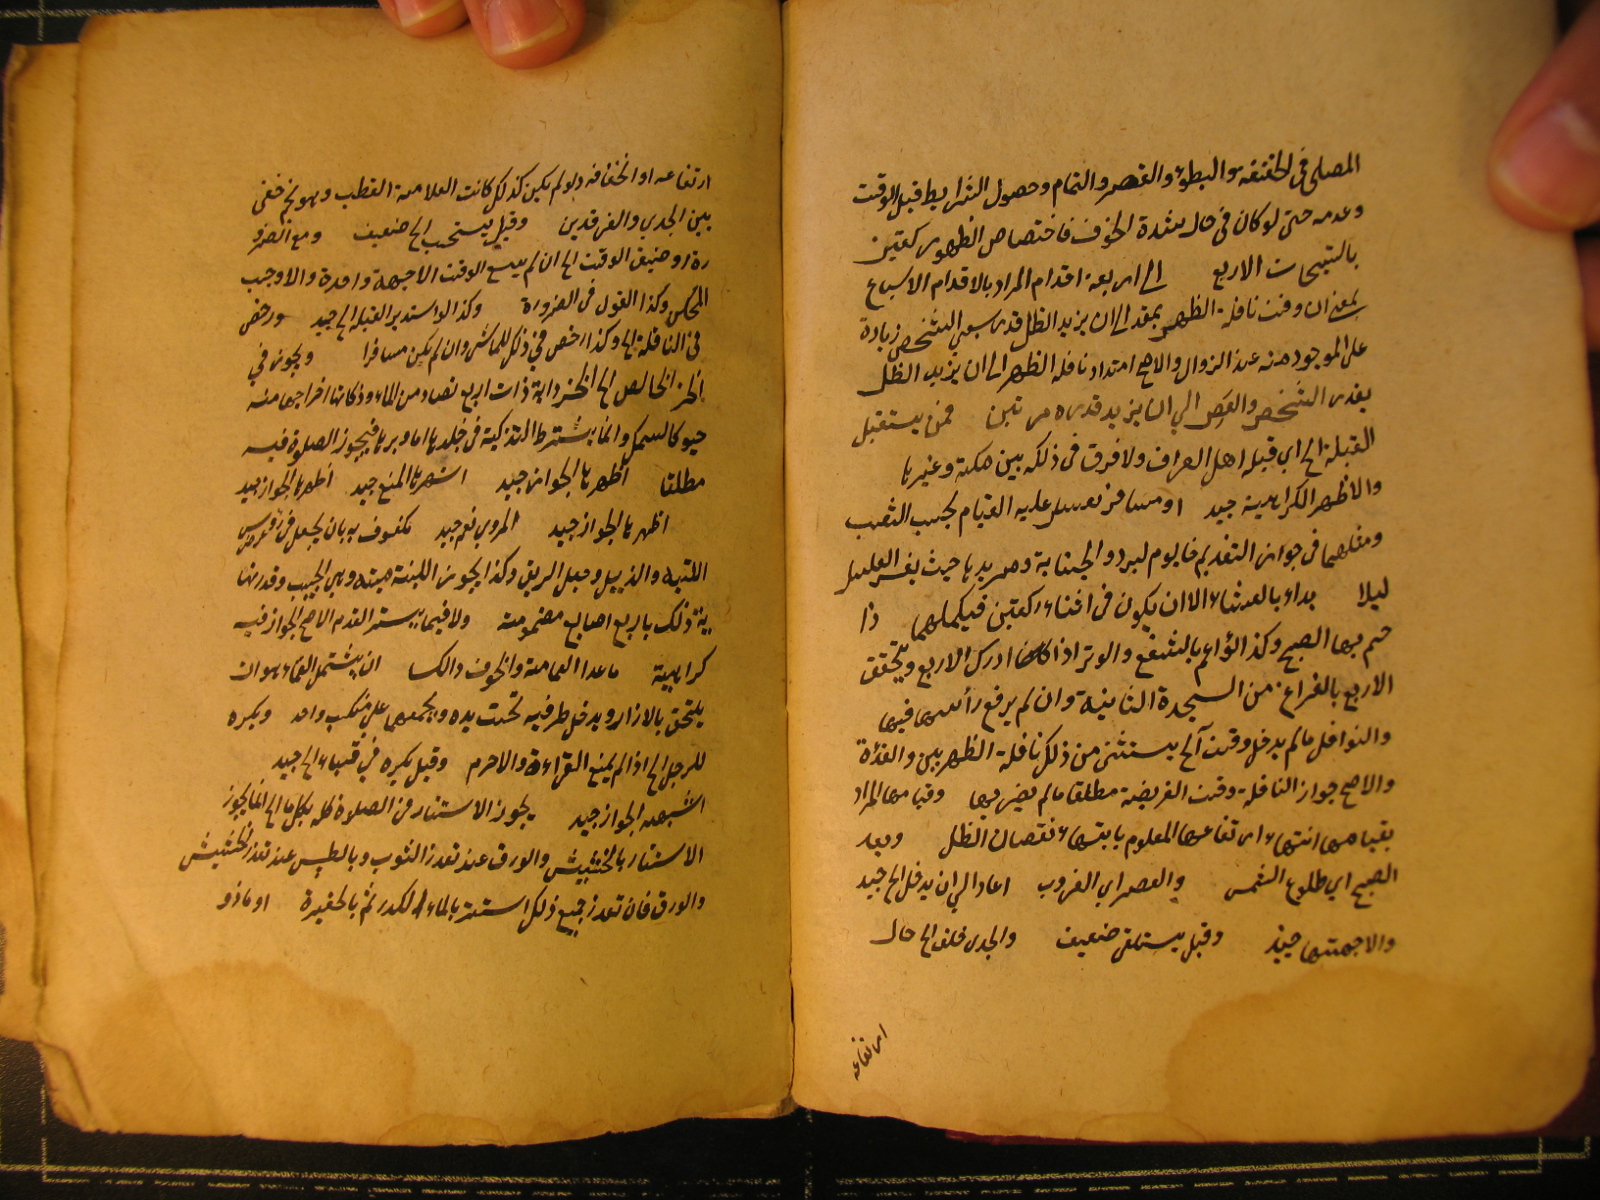 المصلى فى الخفة والبطوء والقصر والتمام وحصول الشرايط قبل الوقت
وعدمه حتى لو كان فى حال شدة الخوف فاختصاص الظهر ركعتين
بالتسبيحات الاربع الى اربعة اقدام المراد بالاقدام الاسباع
بمعنى ان وقت نافلة الظهر بمقدار ان يزيد الظل قدر سبعى الشخص زيادة
على الموجود منه عند الزوال والاصح امتداد نافلة الظهر الى ان يزيد الظل
بقدر الشخص والعصر الى ان يزيد قدره مرتين فمن يستقبل
القبلة الخ اى قبلة اهل العراق ولا فرق فى ذلك بين مكة وغيرها
والاظهر الكراهية جيد او مسافر يصده عليه القيام لجيب التعب
ومثلهما فى جواز التقديم خايف البرد والجنابة ومريدها حيث يفسر الغسل
ليلا بداء بالعشاء الا ان يكون فى اثناء ركعتين فيكملهما ذا
حم بها الصبح وكذا لو زاحم بالشفع والوتر اذا كان ادرك الاربع ويتحقق
الاربع بالفراغ من السجدة الثانية وان لم يرفع رأسه فيها
والنوافل مالم يدخل وقت الخ يستثنى من ذلك نافلة الظهرين والغداة
والاصح جواز النافلة وقت الفريضة مطلقا مالم يضر بها وقيامها المراد
بقيامها انتهاء ارتفاعها المعلوم بانتهاء نقصان الظل وبعد
الصبح اى طلوع الشمس والعصر اى الغروب اعاد الى ان يدخل الخ جيد
والاجهتها جيد وقيل يستلقى ضعيف والجدى خلف الخ حال
ارتفاعه
ارتفاعه او انخفاضه ولو لم يكن كذلك كانت العلامة القطب وهو نجم خفى
بين الجدى والفرقدين وقيل يستحب الخ ضعيف ومع الضرو
رة او ضيق الوقت الخ ان لم يسع الوقت الا جهة واحدة والا وجب
الممكن وكذا القول فى الضرورة وكذا لو استدبر القبلة الخ جيد ورخص
فى النافلة الخ وكذا رخص فى ذلك للماشى وان لم يكن مسافرا ويجوز فى
الخز الخالص الخ الخز دابة ذات اربع تصاد من الماء وذكاتها اخراجها منه
حيو كالسمك وانما يشترط التذكية فى جلدها اما وبرها فيجوز الصلوة فيه
مطلقا اظهرها الجواز جيد اشهرها المنع جيد اظهرها الجواز جيد
اظهرها الجواز جيد المروى نعم جيد مكفوف به بان يجعل فى رؤس
اللبنة والذيل وحول الزيق وكذا يجوز اللبنة منه وهى الجيب وقدر نها
ية ذلك باربع اصابع مضمومة ولا فيما يستر القدم الاصح الجواز فيه
كراهية ما عدا العمامة والخوف والكسا ان يشتمل الصماء هو ان
يلتحق بالازار ويدخل طرفيه تحت يده ويجمعهما على منكب واحد ويكره
للرجل الخ اذا لم يمنع القراءة والا حرم وقيل يكره فى قباء الخ جيد
اشبهه الجواز جيد يجوز الاستتار فى الصلوة كله بكل ما الخ انما يجوز
الاستتار بالحشيش والورق عند تعذر الثوب وبالطين عند تعذر الحشيش
والورق فان تعذر جميع ذلك استتر بالماء الكدر ثم بالحفيرة او ماذو